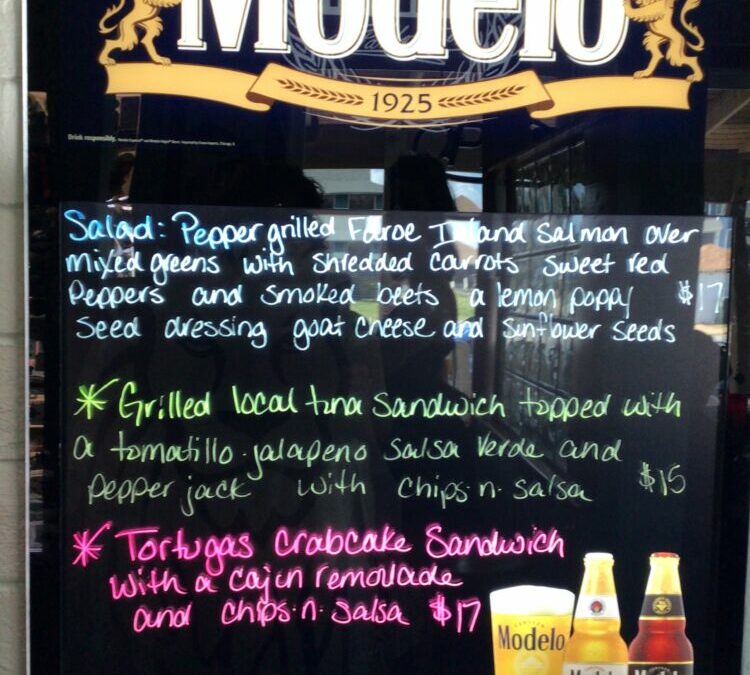 Modelo
1925
Drink responsibly.
Salad: Pepper grilled Faroe Island Salmon over
mixed greens with shredded carrots sweet red
Peppers and smoked beets a lemon poppy $17
Seed dressing goat cheese and sunflower seeds
* Grilled local tuna Sandwich topped with
a tomatillo-jalapeno salsa verde and
pepper jack with chips-n-salsa $15
* Tortugas Crabcake Sandwich
with a cajun remoulade
and chips-n-salsa $17
Modelo